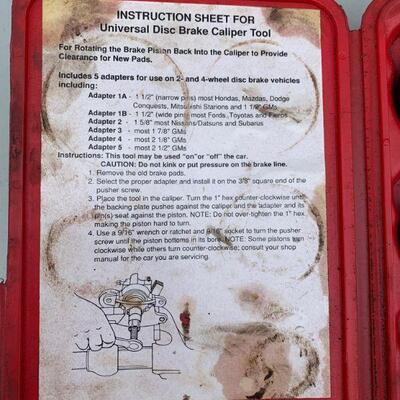 INSTRUCTION SHEET FOR
Universal Disc Brake Caliper Tool
For Rotating the Brake Piston Back Into the Caliper to Provide
Clearance for New Pads.
Includes 5 adapters for use on 2- and 4-wheel disc brake vehicles
including:
Adapter 1A - 1 1/2" (narrow pins) most Hondas, Mazdas, Dodge
Conquests, Mitsubishi Starions and 1 1/2" GMs
Adapter 1B - 1 1/2" (wide pins) most Fords, Toyotas and Fieros
Adapter 2 - 1 5/8" most Nissans/Datsuns and Subarus
Adapter 3 - most 1 7/8" GMs
Adapter 4 - most 2 1/8" GMs
Adapter 5 - most 2 1/2" GMs
Instructions: This tool may be used "on"or "off" the car.
CAUTION: Do not kink or put pressure on the brake line.
1. Remove the old brake pads.
2. Select the proper adapter and install it on the 3/8" square end of the
pusher screw.
3. Place the tool in the caliper. Turn the 1" hex counter-clockwise until
the backing plate pushes against the caliper and the adapter and its
pin(s) seat against the piston. NOTE: Do not over-tighten the 1" hex
making the piston hard to turn.
4. Use a 9/16" wrench or ratchet and 9/16" socket to turn the pusher
screw until the piston bottoms in its bore. NOTE: Some pistons turn
clockwise while others turn counter-clockwise; consult your shop
manual for the car you are servicing.